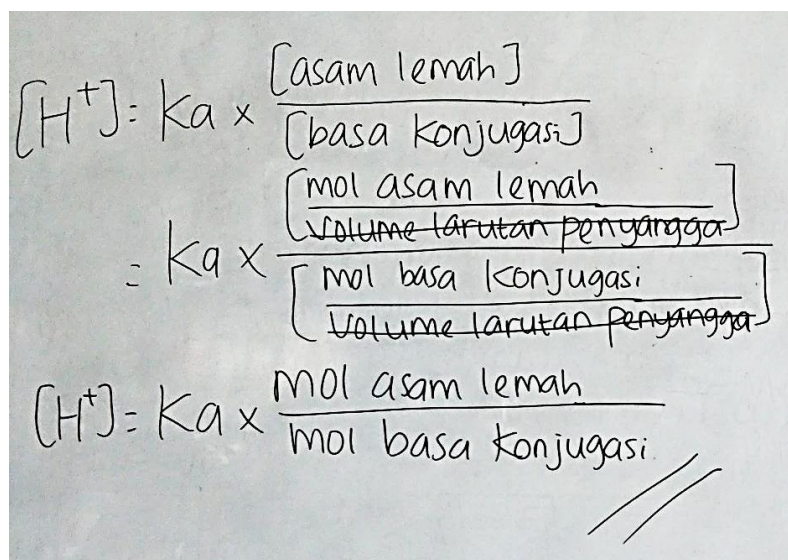 [asam lemah]
[H⁺] = Ka × ———
[basa konjugasi]
[mol asam lemah
volume larutan penyangga]
= Ka × ———
[mol basa konjugasi
volume larutan penyangga]
mol asam lemah
[H⁺] = Ka × ———
mol basa konjugasi